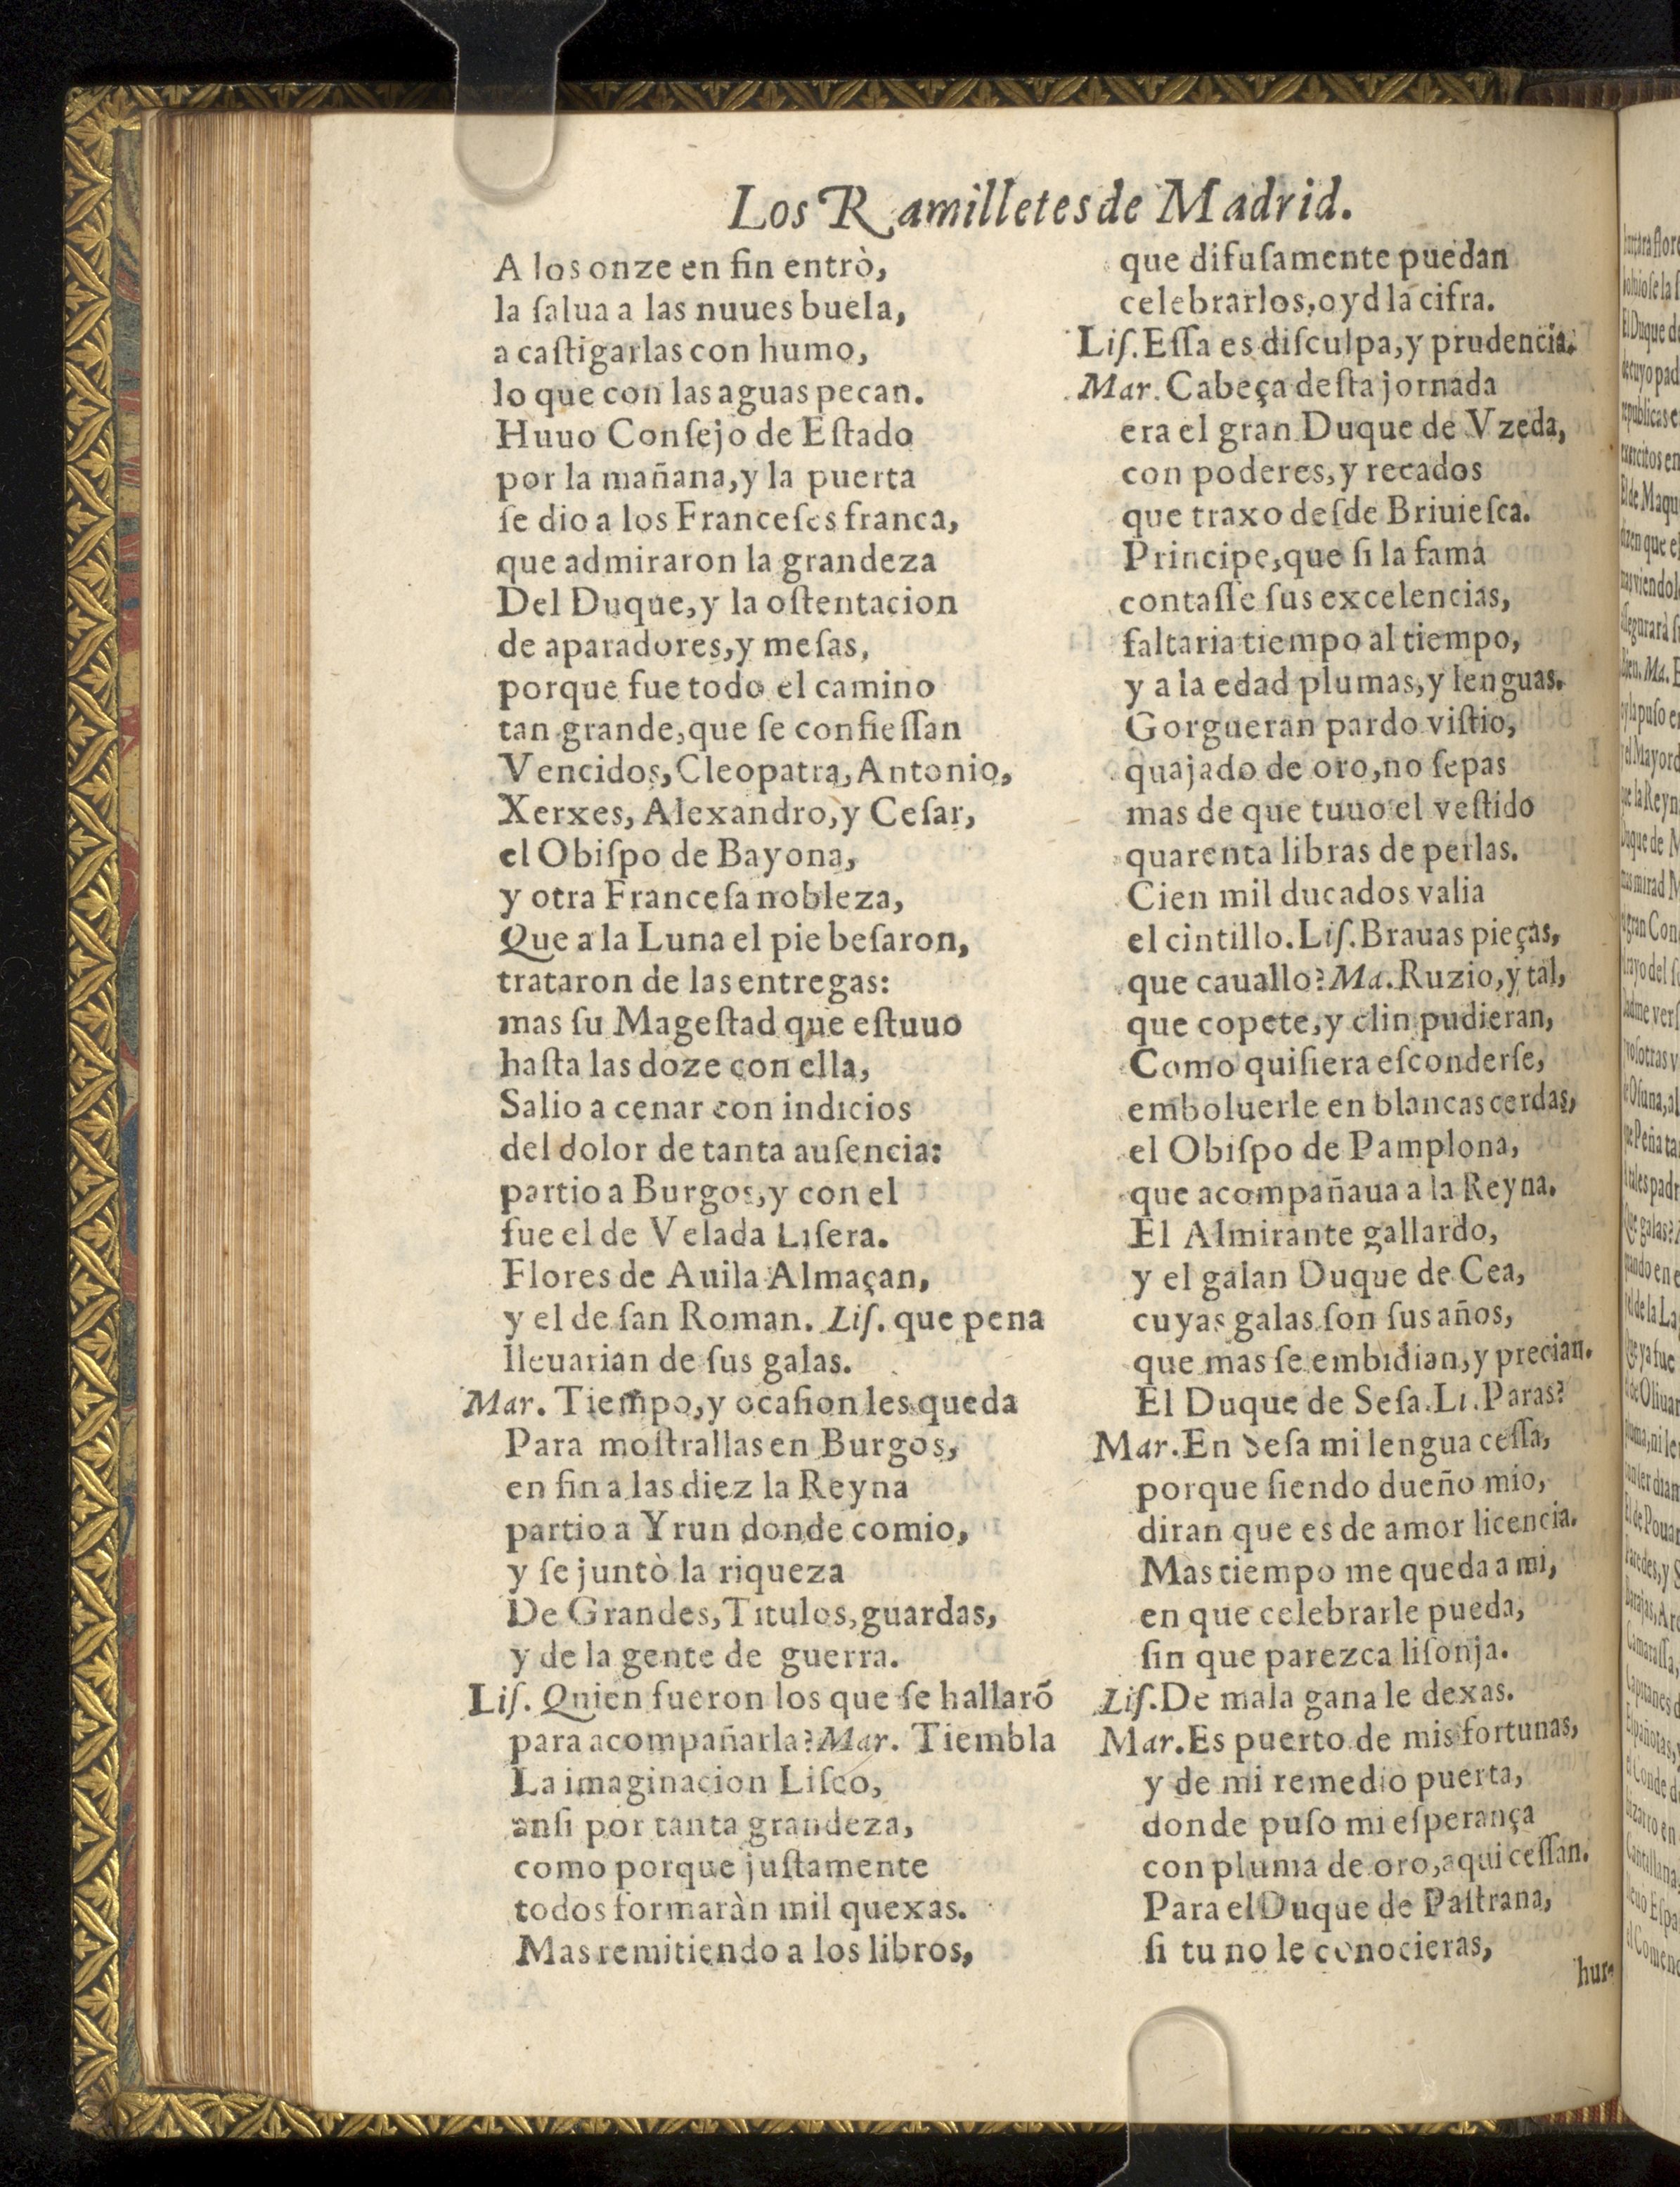 Los Ramilletes de Madrid.
A los onze en fin entrò,
la ſalua a las nuues buela,
a caſtigarlas con humo,
lo que con las aguas pecan.
Huuo Conſejo de Eſtado
por la mañana,y la puerta
ſe dio a los Franceſes franca,
que admiraron la grandeza
Del Duque,y la oſtentacion
de aparadores,y meſas,
porque fue todo el camino
tan grande,que ſe confieſſan
Vencidos,Cleopatra,Antonio,
Xerxes, Alexandro,y Ceſar,
el Obiſpo de Bayona,
y otra Franceſa nobleza,
Que a la Luna el pie beſaron,
trataron de las entregas:
mas ſu Mageſtad que eſtuuo
haſta las doze con ella,
Salio a cenar con indicios
del dolor de tanta auſencia:
partio a Burgos,y con el
fue el de Velada Liſera.
Flores de Auila Almaçan,
y el de ſan Roman. Liſ. que pena
lleuarian de ſus galas.
Mar. Tiempo,y ocaſion les queda
Para moſtrallas en Burgos,
en fin a las diez la Reyna
partio a Yrun donde comio,
y ſe juntò la riqueza
De Grandes,Titulos,guardas,
y de la gente de guerra.
Liſ. Quien fueron los que ſe hallarõ
para acompañarla?Mar. Tiembla
La imaginacion Liſeo,
anſi por tanta grandeza,
como porque juſtamente
todos formaràn mil quexas.
Mas remitiendo a los libros,
que difuſamente puedan
celebrarlos,oyd la cifra.
Liſ.Eſſa es diſculpa,y prudencia.
Mar.Cabeça deſta jornada
era el gran Duque de Vzeda,
con poderes,y recados
que traxo deſde Briuieſca.
Principe,que ſi la fama
contaſſe ſus excelencias,
faltaria tiempo al tiempo,
y a la edad plumas,y lenguas.
Gorgueran pardo viſtio,
quajado de oro,no ſepas
mas de que tuuo el veſtido
quarenta libras de perlas.
Cien mil ducados valia
el cintillo.Liſ.Brauas pieças,
que cauallo?Ma.Ruzio,y tal,
que copete,y clin pudieran,
Como quiſiera eſconderſe,
emboluerle en blancas cerdas,
el Obiſpo de Pamplona,
que acompañaua a la Reyna.
El Almirante gallardo,
y el galan Duque de Cea,
cuyas galas ſon ſus años,
que mas ſe embidian,y precian.
El Duque de Seſa.Li.Paras?
Mar.En Seſa mi lengua ceſſa,
porque ſiendo dueño mio,
diran que es de amor licencia.
Mas tiempo me queda a mi,
en que celebrarle pueda,
ſin que parezca liſonja.
Liſ.De mala gana le dexas.
Mar.Es puerto de mis fortunas,
y de mi remedio puerta,
donde puſo mi eſperança
con pluma de oro,aqui ceſſan.
Para el Duque de Paſtrana,
ſi tu no le conocieras,
hur